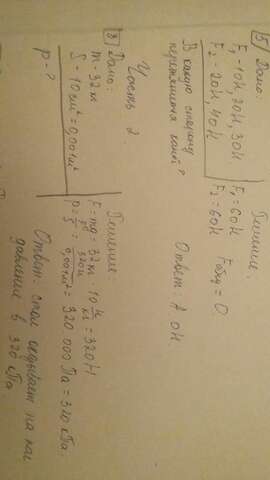 5) Дано:
F₁ - 10Н, 20Н, 30Н
F₂ - 20Н, 40Н
В какую сторону
переместится канат?
Решение:
F₁ = 60Н
F₂ = 60Н Fравд = 0
Ответ: 0Н.
Часть 2
3) Дано:
m - 32кг
S - 10см² = 0,001м²
p - ?
Решение
F = mg = 32кг · 10 Н/кг = 320Н
p = F/S = 320Н/0,001м² = 320 000 Па = 320 кПа
Ответ: стол оказывает на
давление в 320 кПа.